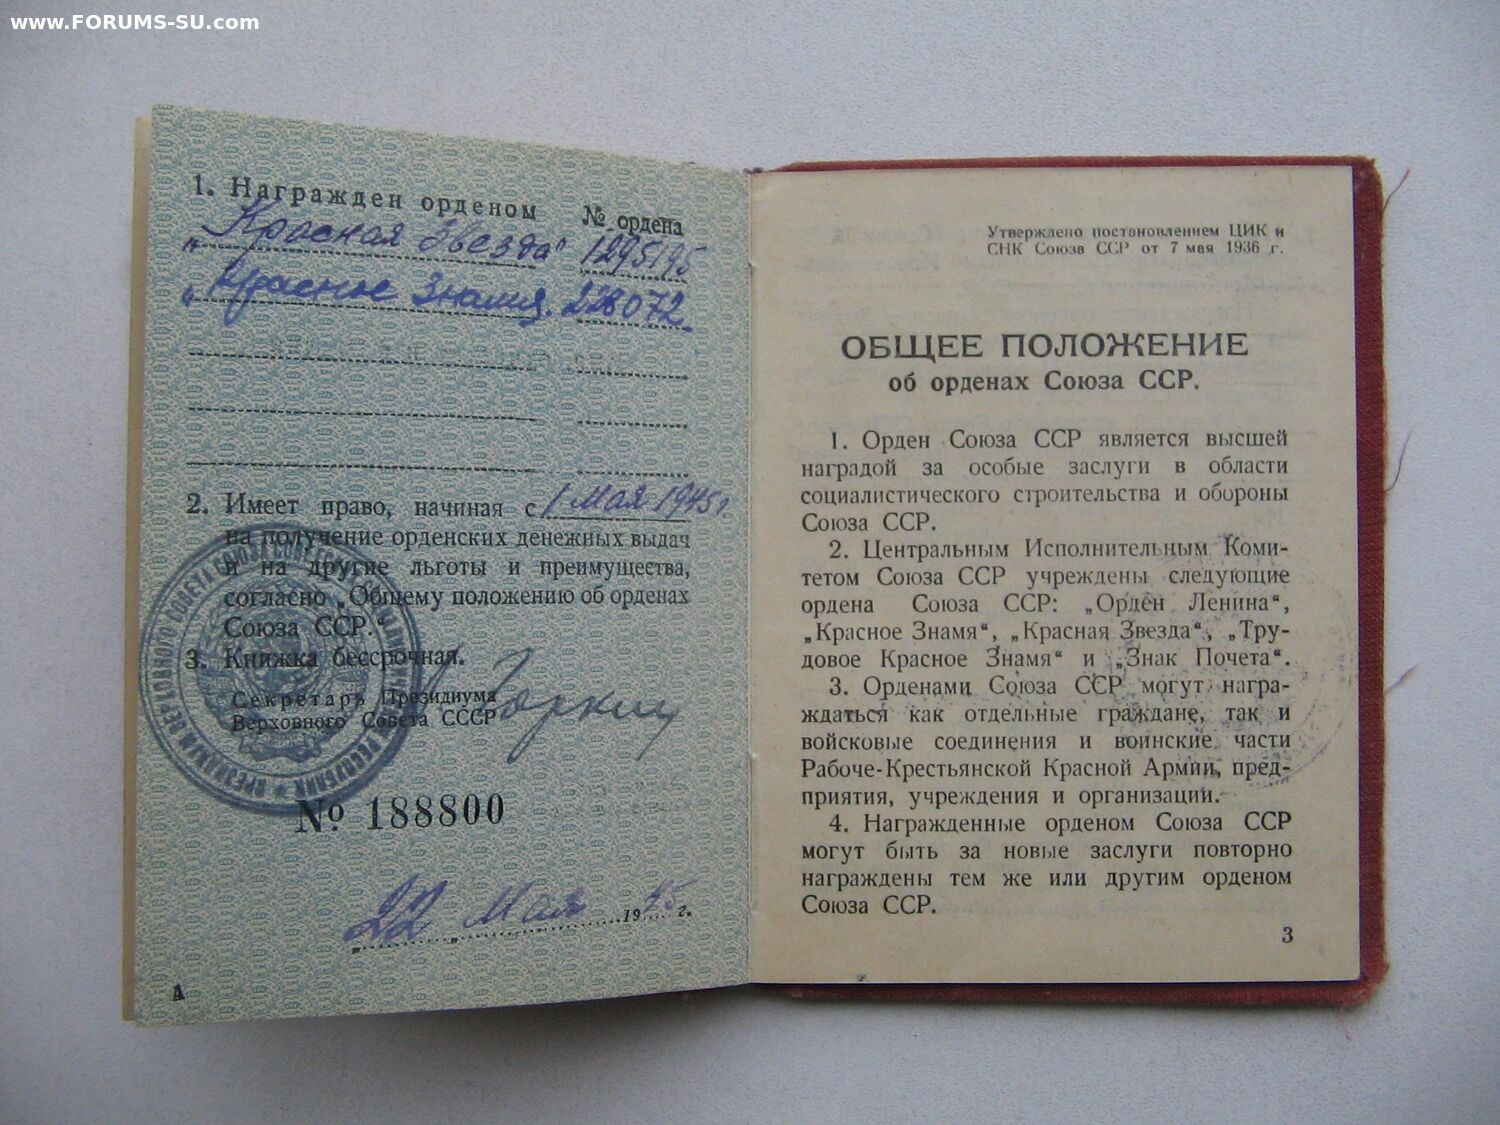 www.FORUMS-SU.com
1. Награжден орденом № ордена
„Красная Звезда" 1295195
„Красное Знамя. 228072
2. Имеет право, начиная с 1 мая 1945 г
на получение орденских денежных выдач
и на другие льготы и преимущества,
согласно „Общему положению об орденах
Союза ССР."
3. Книжка бессрочная.
Секретарь Президиума
Верховного Совета СССР
Горкин
№ 188800
„22„ Мая 1945 г.
А
Утверждено постановлением ЦИК и
СНК Союза ССР от 7 мая 1936 г.
ОБЩЕЕ ПОЛОЖЕНИЕ
об орденах Союза ССР.
1. Орден Союза ССР является высшей
наградой за особые заслуги в области
социалистического строительства и обороны
Союза ССР.
2. Центральным Исполнительным Коми-
тетом Союза ССР учреждены следующие
ордена Союза ССР: „Орден Ленина",
„Красное Знамя", „Красная Звезда", „Тру-
довое Красное Знамя" и „Знак Почета".
3. Орденами Союза ССР могут награ-
ждаться как отдельные граждане, так и
войсковые соединения и воинские части
Рабоче-Крестьянской Красной Армии, пред-
приятия, учреждения и организации.
4. Награжденные орденом Союза ССР
могут быть за новые заслуги повторно
награждены тем же или другим орденом
Союза ССР.
3